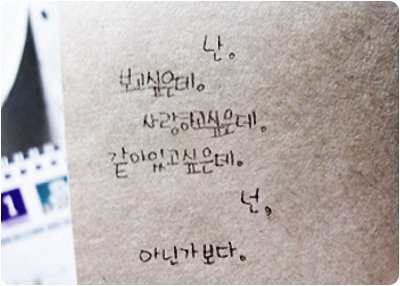 난。
보고싶은데。
사랑하고싶은데。
같이있고싶은데。
넌。
아닌가보다。
1